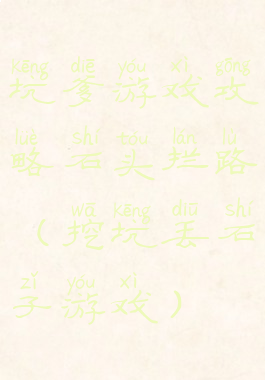 kēng diē yóu xì gōng
坑爹游戏攻
luè shí tóu lán lù
略石头拦路
wā kēng diū shí
（挖坑丢石
zǐ yóu xì
子游戏）